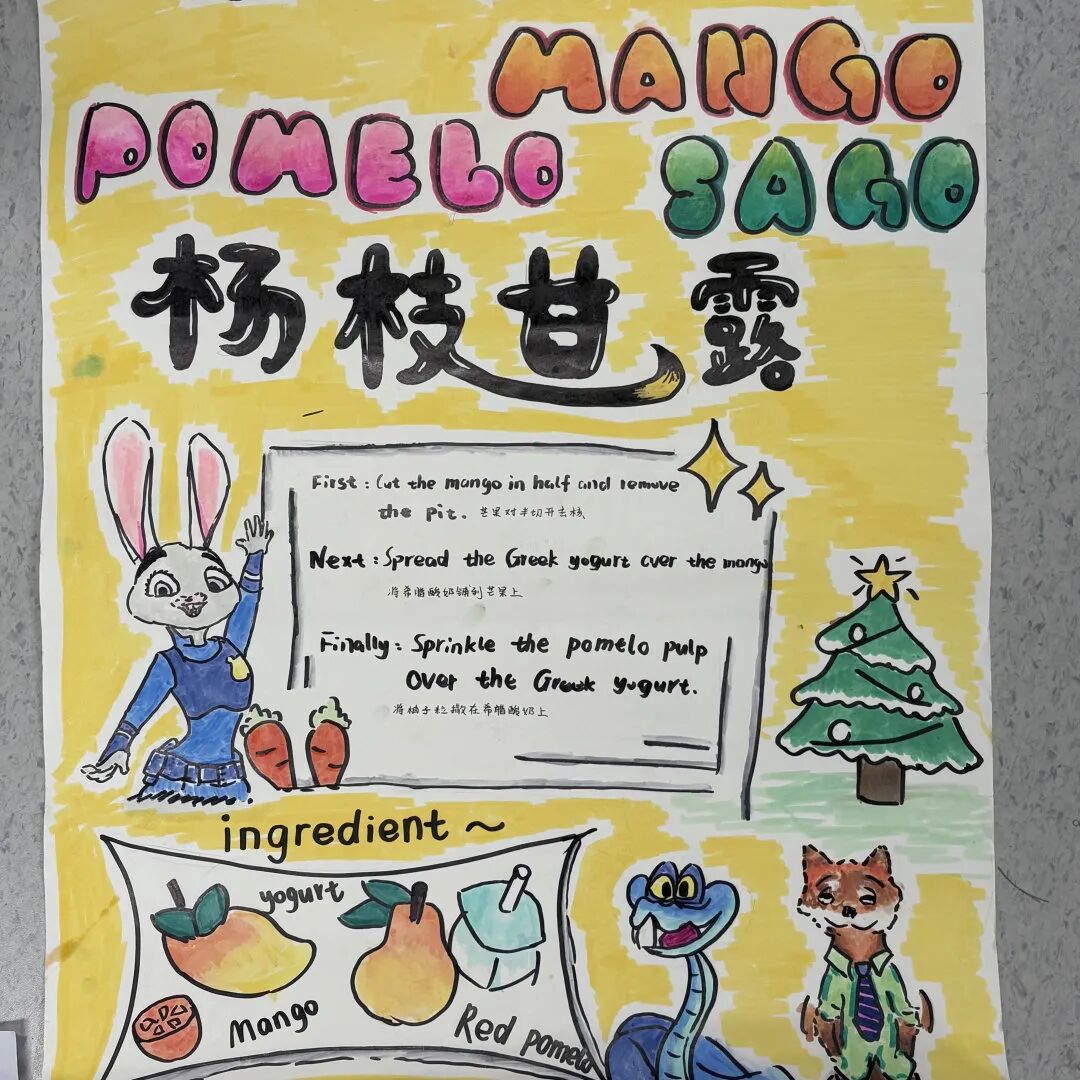 MANGO
POMELO
SAGO
杨枝甘露
First : Cut the mango in half and remove
the pit. 芒果对半切开去核
Next : Spread the Greek yogurt over the mango
将希腊酸奶铺到芒果上
Finally : Sprinkle the pomelo pulp
over the Greek yogurt.
将柚子粒撒在希腊酸奶上
ingredient ~
yogurt
Mango
Red pomelo